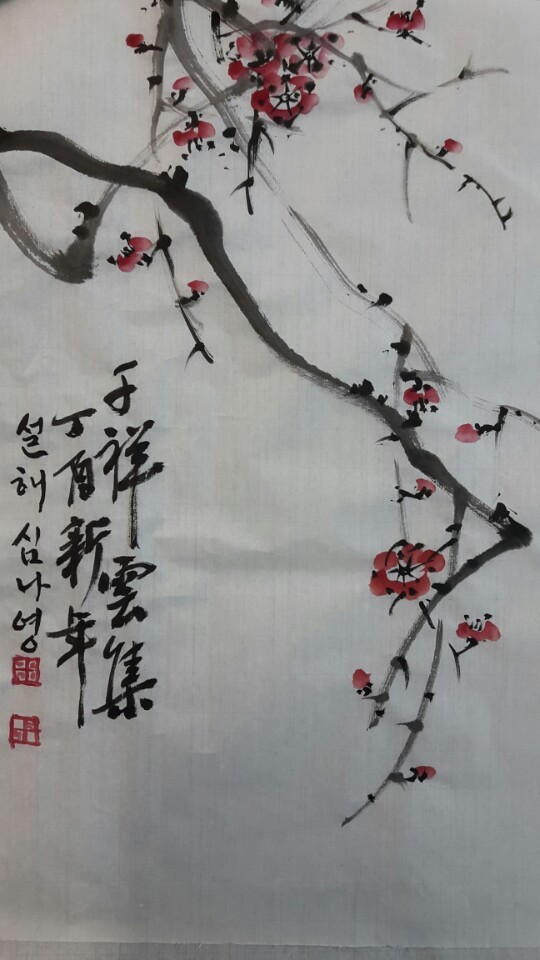 千祥雲集
丁酉新年
설해 심나영